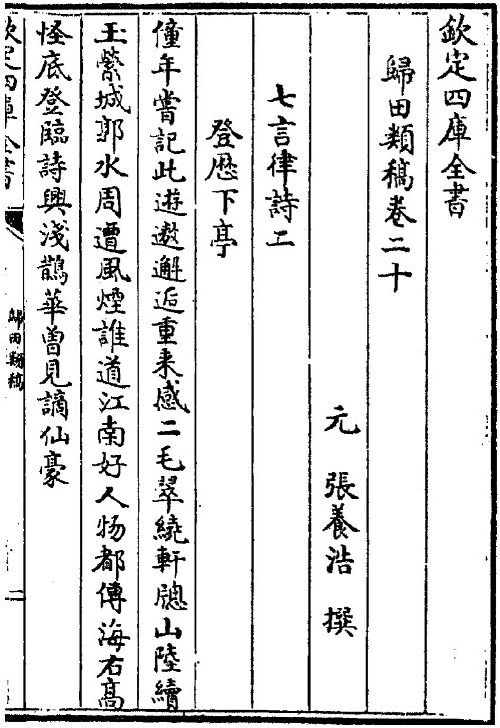 欽定四庫全書
歸田類稿卷二十
元 張養浩 撰
七言律詩二
登歴下亭
僮年嘗記此遊遨邂逅重来感二毛翠繞軒牕山陸續
玉縈城郭水周遭風煙誰道江南好人物都傳海右髙
怪底登臨詩興淺鵲華曽見謫仙豪
欽定四庫全書
歸田類稿